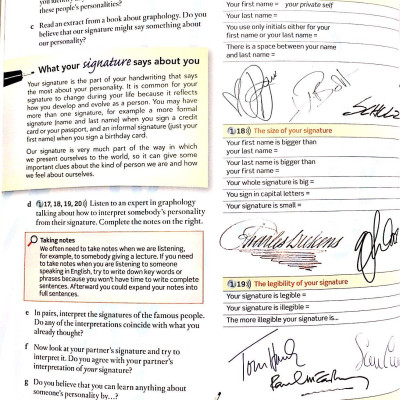 these people's personalities?
c Read an extract from a book about graphology. Do you
believe that our signature might say something about
our personality?
What your signature says about you
Your signature is the part of your handwriting that says
the most about your personality. It is common for your
signature to change during your life because it reflects
how you develop and evolve as a person. You may have
more than one signature, for example a more formal
signature (name and last name) when you sign a credit
card or your passport, and an informal signature (just your
first name) when you sign a birthday card.
Our signature is very much part of the way in which
we present ourselves to the world, so it can give some
important clues about the kind of person we are and how
we feel about ourselves.
d 1 17, 18, 19, 20 Listen to an expert in graphology
talking about how to interpret somebody's personality
from their signature. Complete the notes on the right.
Taking notes
We often need to take notes when we are listening,
for example, to somebody giving a lecture. If you need
to take notes when you are listening to someone
speaking in English, try to write down key words or
phrases because you won't have time to write complete
sentences. Afterward you could expand your notes into
full sentences.
e In pairs, interpret the signatures of the famous people.
Do any of the interpretations coincide with what you
already thought?
f Now look at your partner's signature and try to
interpret it. Do you agree with your partner's
interpretation of your signature?
g Do you believe that you can learn anything about
someone's personality by...?
Your first name = your private self
Your last name =
You use only initials either for your
first name or your last name =
There is a space between your name
and last name =
1 18 The size of your signature
Your first name is bigger than
your last name =
Your last name is bigger than
your first name =
Your whole signature is big =
You sign in capital letters =
Your signature is small =
Charles Dickens
1 19 The legibility of your signature
Your signature is legible =
Your signature is illegible =
The more illegible your signature is...
Tom Hanks
Paul McCartney